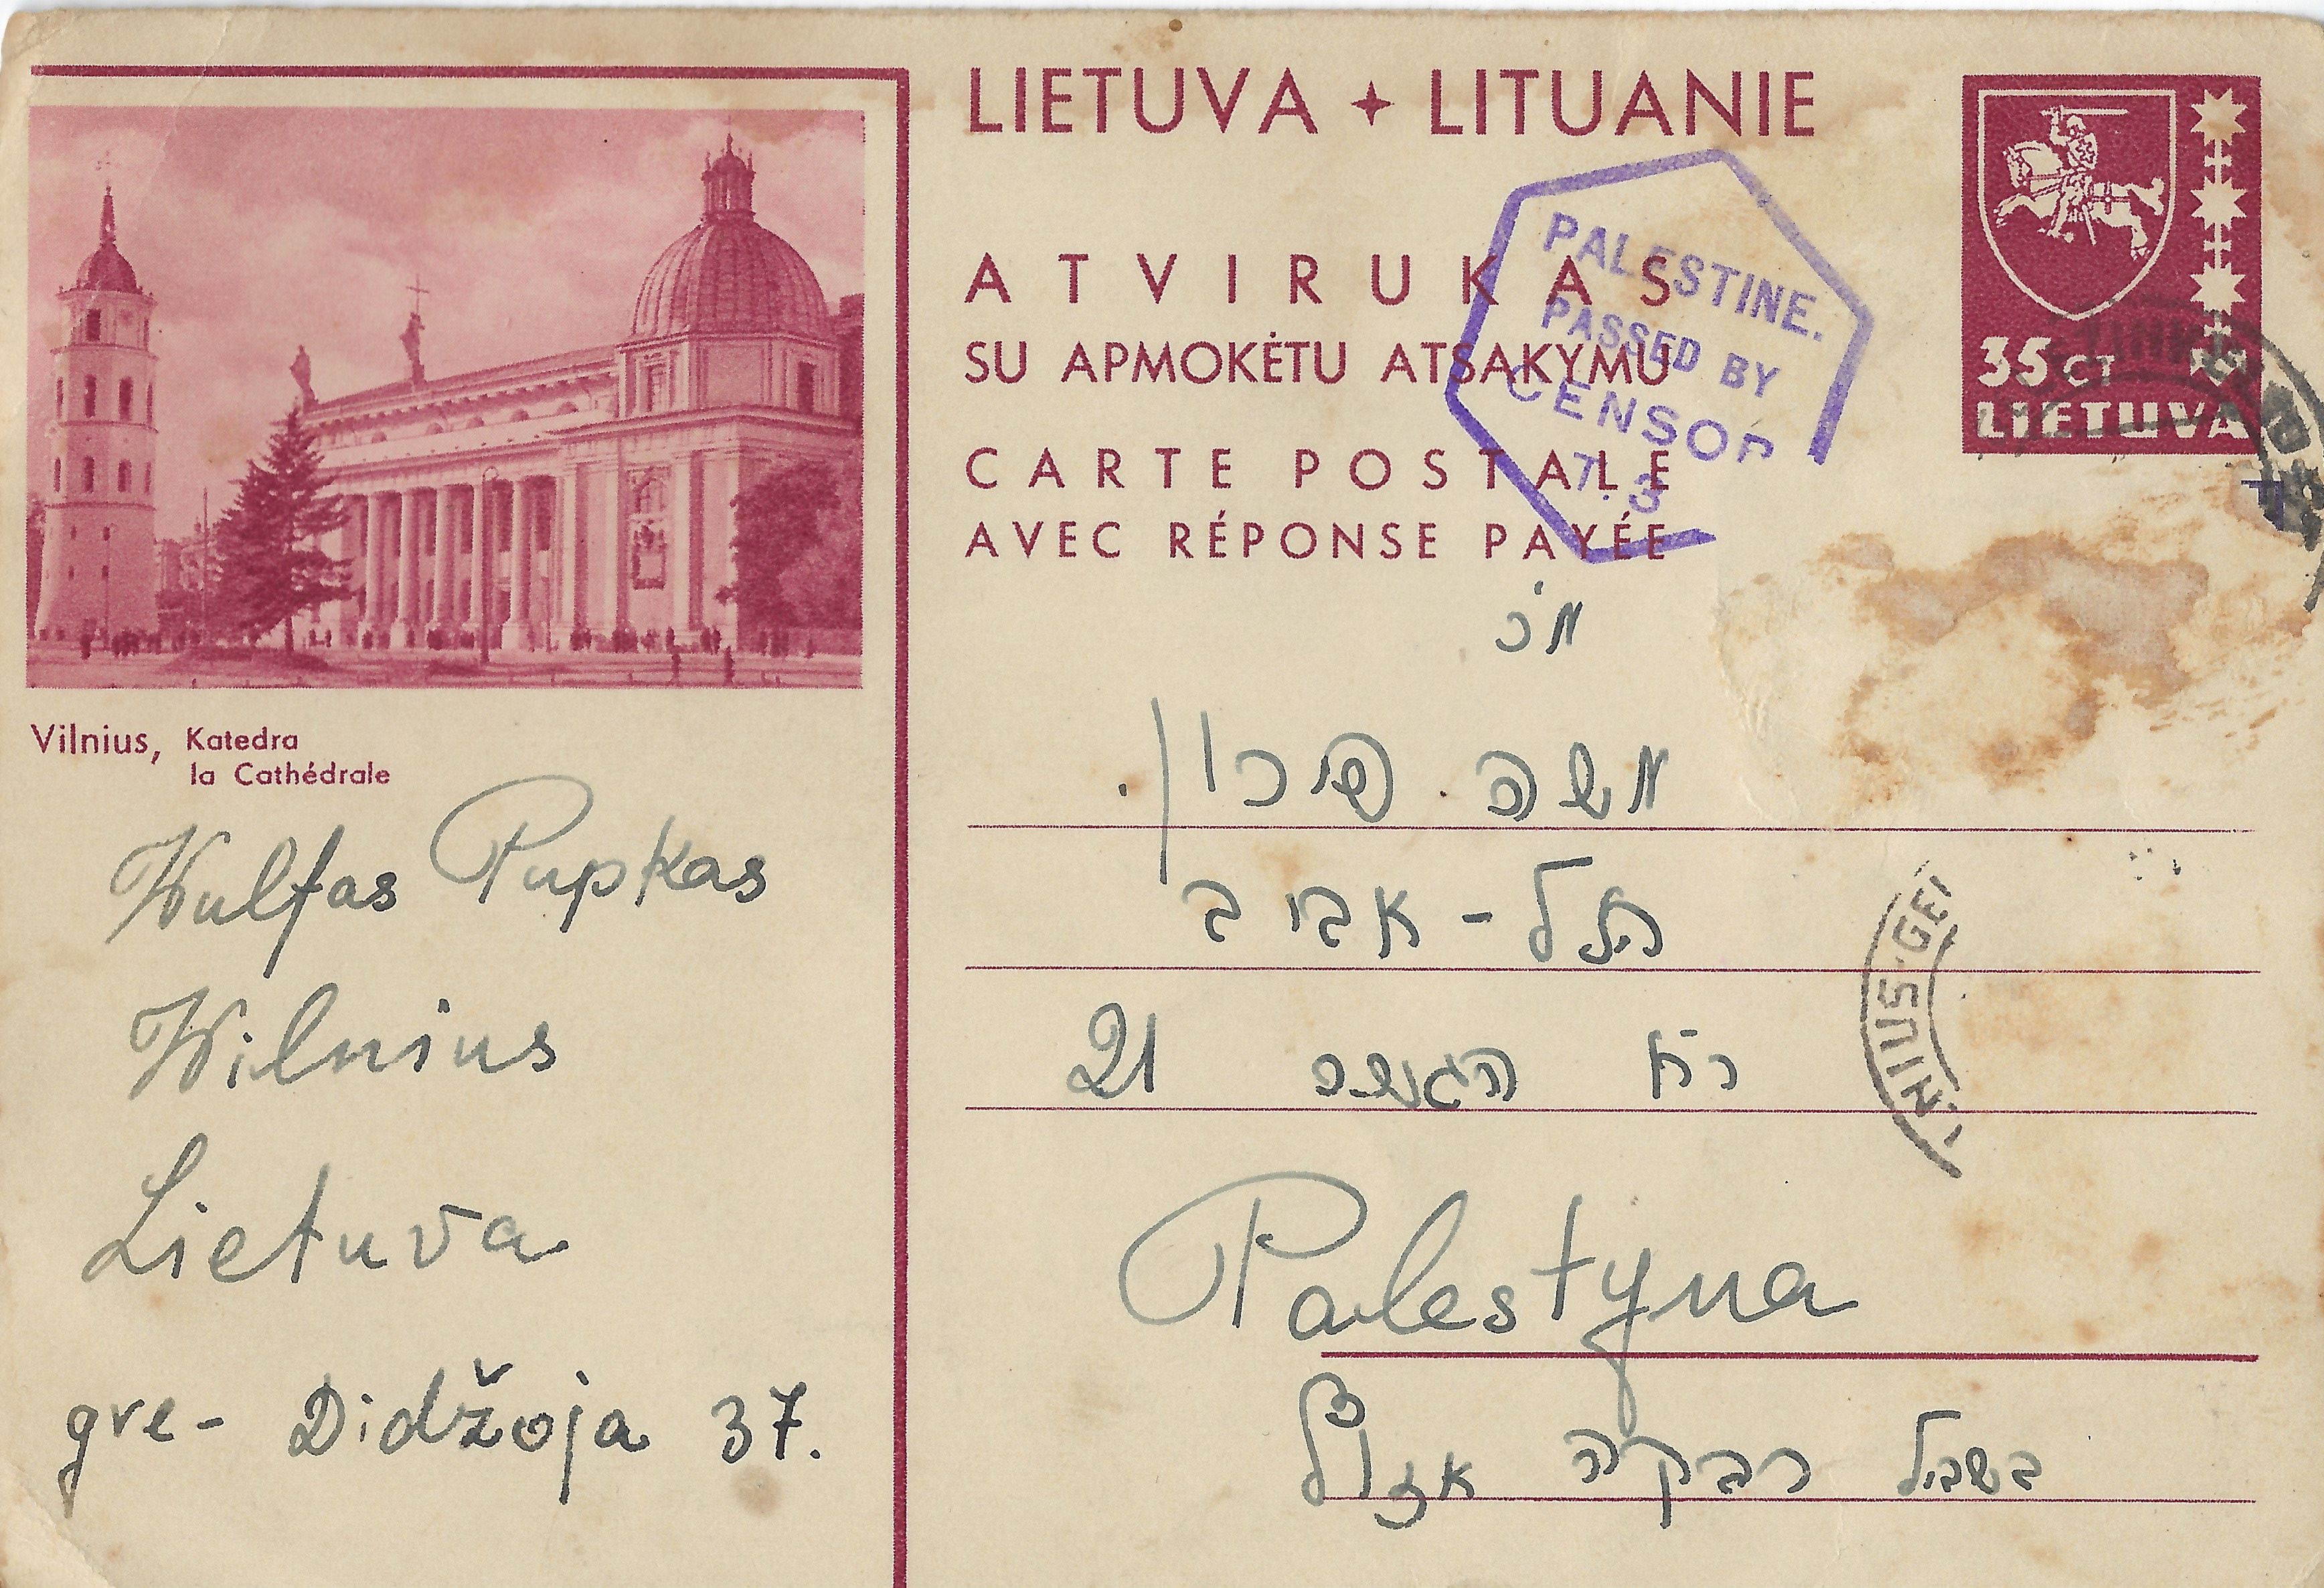 LIETUVA + LITUANIE
ATVIRUKAS
SU APMOKĖTU ATSAKYMU
CARTE POSTALE
AVEC RÉPONSE PAYÉE
35 CT
LIETUVA
PALESTINE.
PASSED BY
CENSOR
T. 3
Vilnius, Katedra
la Cathédrale
Wulfas Pupkas
Wilnius
Lietuva
gre- Didžoja 37.
משה
תל-אביב
21
Palestyna
בשביל רבקה